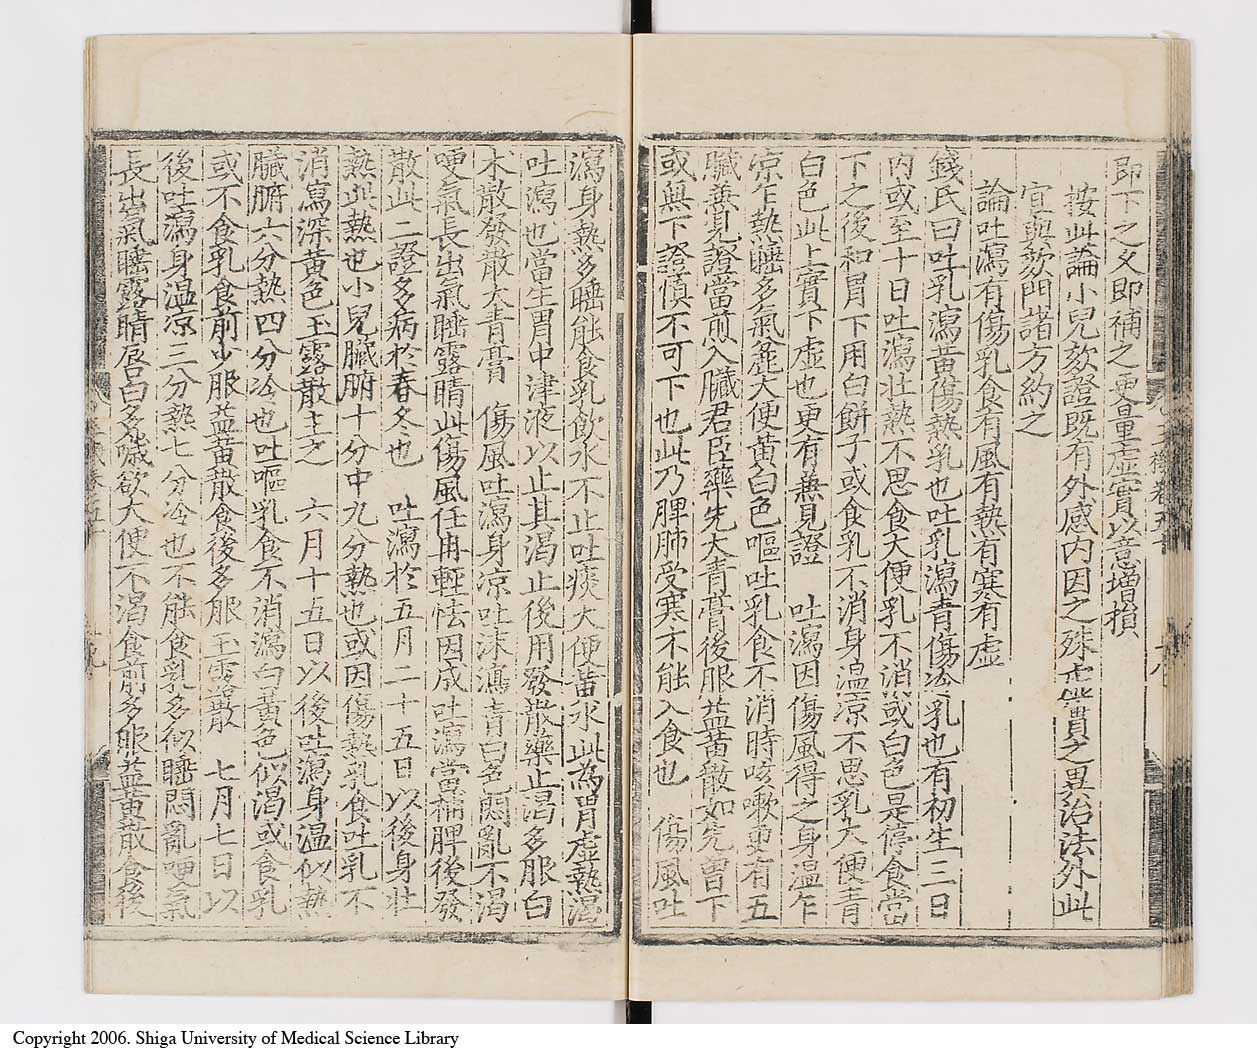 即下之父即補之更量虛實以意增損
按此論小兒欬證既有外感內因之殊虛實之異治法外此
宜與欬門諸方約之
論吐瀉有傷乳食有風有熱有寒有虛
錢氏曰吐乳瀉黃傷熱乳也吐乳瀉青傷冷乳也有初生三日
內或至十日吐瀉壯熱不思食大便乳不消或白色是停食當
下之後和胃下用白餅子或食乳不消身溫凉不思乳大便青
白色此上實下虛也更有兼見證 吐瀉因傷風得之身溫乍
凉乍熱睡多氣麁大便黃白色嘔吐乳食不消時咳嗽更有五
臟兼見證當煎入臟君臣藥先大青膏後服益黃散如先曾下
或無下證慎不可下也此乃脾肺受寒不能入食也 傷風吐
瀉身熱多睡能食乳飲水不止吐痰大便黃水此為胃虛熱渴
吐瀉也當生胃中津液以止其渴止後用發散藥止渴多服白
木散發散大青膏 傷風吐瀉身凉吐沫瀉青白色悶亂不渴
哽氣長出氣睡露睛此傷風荏苒輕怯因成吐瀉當補脾後發
散此二證多病於春冬也 吐瀉於五月二十五日以後身壯
熱此熱也小兒臟腑十分中九分熱也或因傷熱乳食吐乳不
消瀉深黃色玉露散主之 六月十五日以後吐瀉身溫似熱
臟腑六分熱四分冷也吐嘔乳食不消瀉白黃色似渴或食乳
或不食乳食前少服益黃散食後多服玉露散 七月七日以
後吐瀉身溫凉三分熱七分冷也不能食乳多似睡悶亂哽氣
長出氣睡露睛唇白多噦欲大便不渴食前多服益黃散食後
Copyright 2006. Shiga University of Medical Science Library